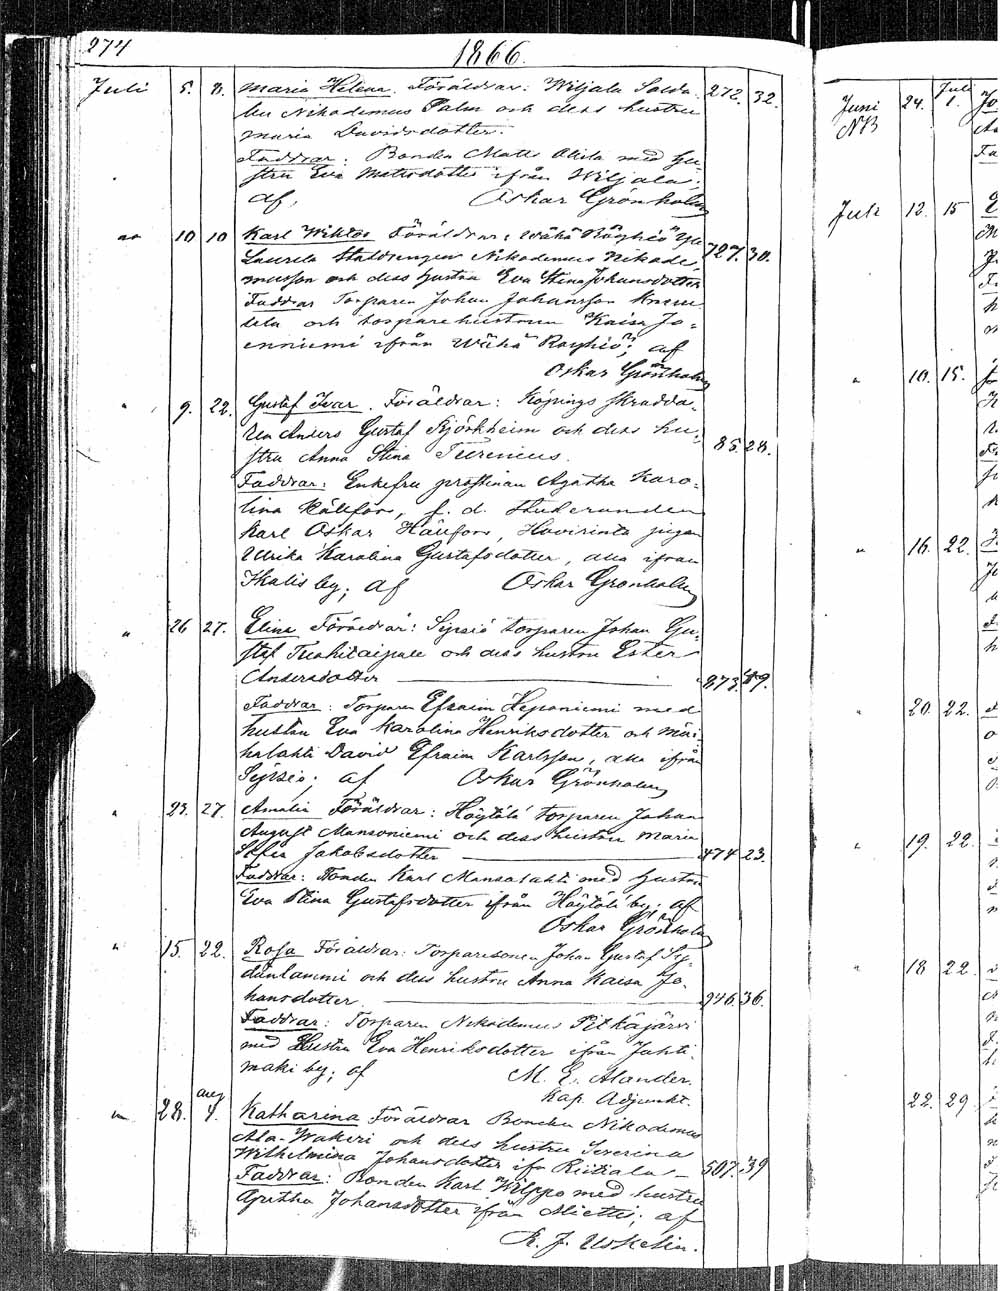 274
1866.
Juli 5. 8. Maria Helena. Föräldrar: Wiljala Solda-
ten Nikodemus Palm och dess hustru 272. 32.
Maria Davidsdotter.
Faddrar: Bonden Matts Alila med hu-
stru Eva Mattsdotter ifrån Wiljala;
af, Oskar Grönholm
10 10 Karl Wiktor Föräldrar: Wähä Röyhiö
Laurila Stalldrengen Nikodemus Nikode- 727. 30.
musson och dess hustru Eva Stina Johansdotter
Faddrar Torparen Johan Johansson
och torparehustrun Kaisa Jo-
enniemi ifrån Wähä Röyhiö; af
Oskar Grönholm
" 9. 22. Gustaf Ivar. Föräldrar: Köpings skredda-
ren Anders Gustaf Björkheim och dess hu- 85. 28.
stru Anna Stina Turenius.
Faddrar: Enkefru prostinnan Agatha Karo-
lina Hällfors, f. d. Studeranden
Karl Oskar Hällfors, Hovirinta pigan
Ulrika Karolina Gustafsdotter, alla ifrån
Ikalis by; af Oskar Grönholm
" 26 27. Elina Föräldrar: Sipsiö torparen Johan Gu-
staf och dess hustru Ester
Andersdotter 873. 49.
Faddrar: Torparen Efraim Heponiemi med
hustru Eva Karolina Henriksdotter och
David Efraim Karlsson, alla ifrån
Sipsiö; af Oskar Grönholm
" 23. 27. Amalia Föräldrar: Höytölä torparen Johan
August Mansoniemi och dess hustru Maria
Sofia Jakobsdotter 474 23.
Faddrar: Bonden Karl Mansolahti med hustru
Eva Stina Gustafsdotter ifrån Höytölä by; af
Oskar Grönholm
" 15. 22. Rosa Föräldrar: Torparesonen Johan Gustaf Sy-
dänlammi och dess hustru Anna Kaisa Jo-
hansdotter 946. 36.
Faddrar: Torparen Nikodemus Pitkäjärvi
med Hustru Eva Henriksdotter ifrån Jahti-
maki by; af M. E. Alander.
Kap. Adjunkt.
" 28. aug 4. Katharina Föräldrar Bonden Nikodemus
Ala-Wakeri och dess hustru Severina
Wilhelmina Johansdotter ifr Riitiala 507. 39
Faddrar: Bonden Karl Wilppo med hustru
Gretha Johansdotter ifrån Miettis; af
K. J. Uskelin.
Juni 24. Juli 1.
NB
Juli 12. 15
" 10. 15.
" 16. 22.
" 20. 22.
" 19. 22.
" 18 22.
22. 29